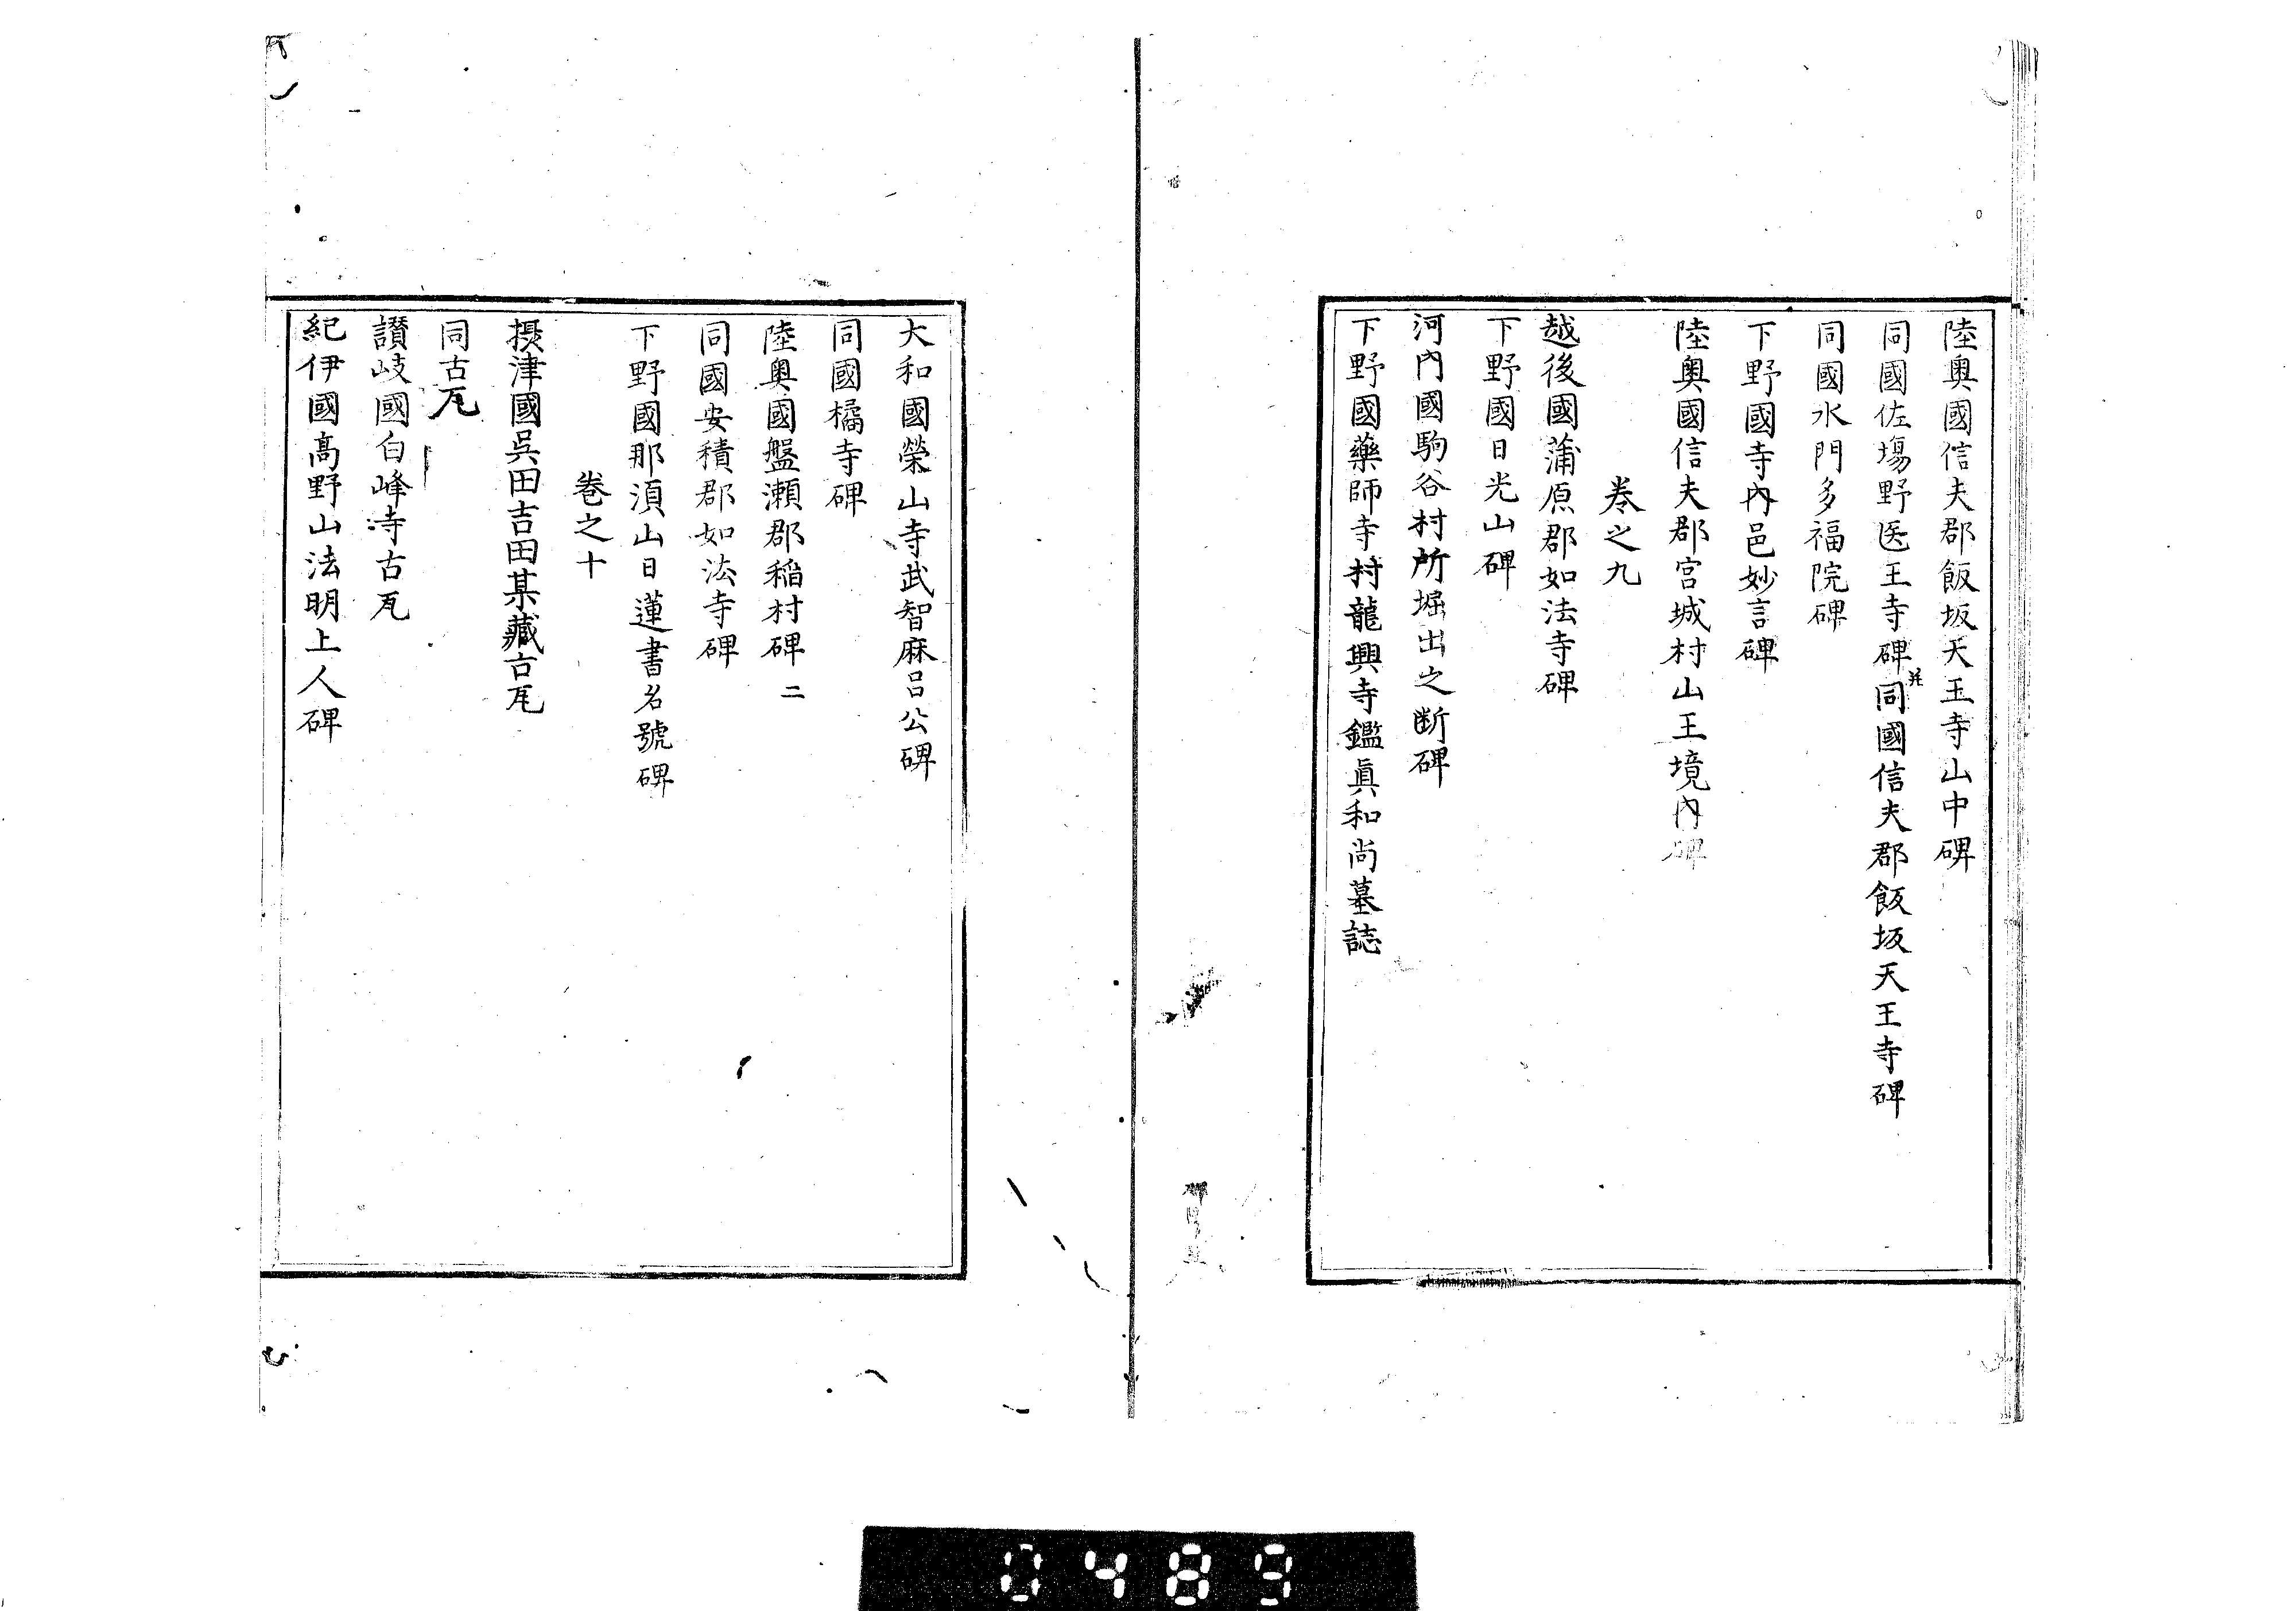 陸奥國信夫郡飯坂天王寺山中碑
同國佐塲野医王寺碑幷同國信夫郡飯坂天王寺碑
同國水門多福院碑
下野國寺內邑妙言碑
陸奥國信夫郡宮城村山王境內碑
卷之九
越後國蒲原郡如法寺碑
下野國日光山碑
河內國駒谷村所堀出之断碑
下野國藥師寺村龍興寺鑑眞和尚墓誌
大和國榮山寺武智麻呂公碑
同國橘寺碑
陸奥國盤瀬郡稲村碑 二
同國安積郡如法寺碑
下野國那須山日蓮書名號碑
卷之十
摂津國吳田吉田某藏古瓦
同古瓦
讃岐國白峰寺古瓦
紀伊國髙野山法明上人碑
0489